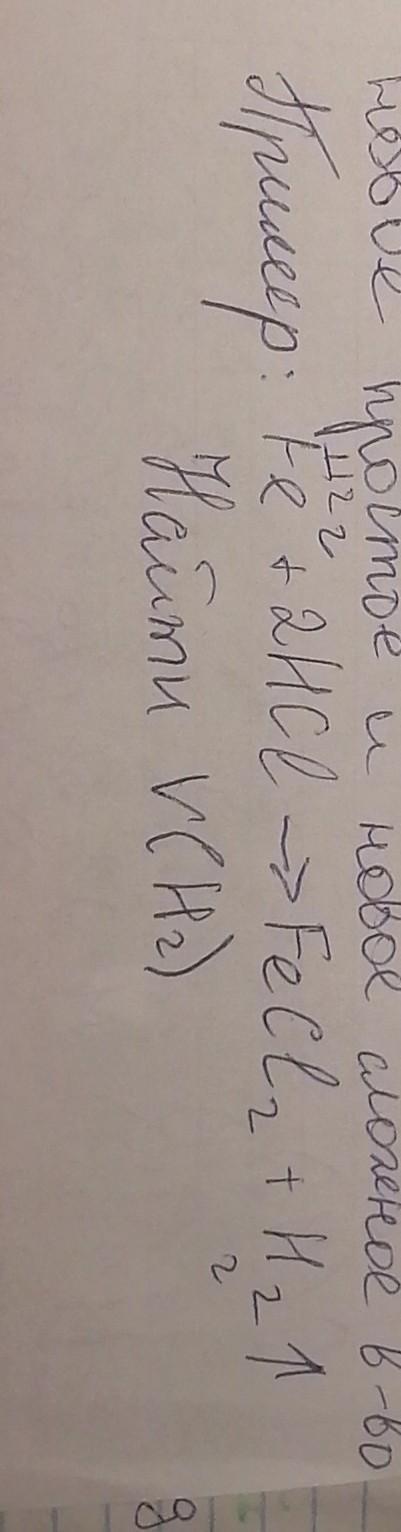 новое простое и новое сложное в-во
112 г
Пример: Fe + 2HCl → FeCl₂ + H₂↑
г
Найти V(H₂)